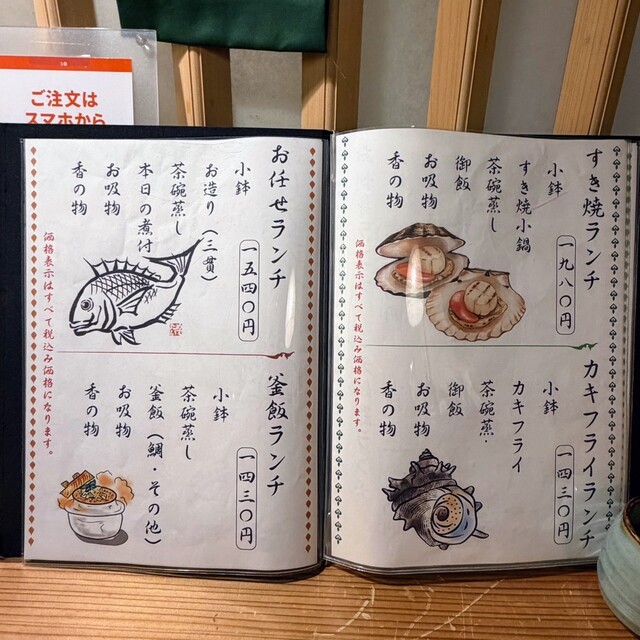 ご注文は
スマホから
すき焼ランチ
一九八〇円
小鉢
すき焼小鍋
茶碗蒸し
御飯
お吸物
香の物
カキフライランチ
一四三〇円
小鉢
カキフライ
茶碗蒸・
御飯
お吸物
香の物
価格表示はすべて税込み価格になります。
お任せランチ
一五四〇円
小鉢
お造り(三貫)
茶碗蒸し
本日の煮付
お吸物
香の物
釜飯ランチ
一四三〇円
小鉢
茶碗蒸し
釜飯(鯛・その他)
お吸物
香の物
価格表示はすべて税込み価格になります。